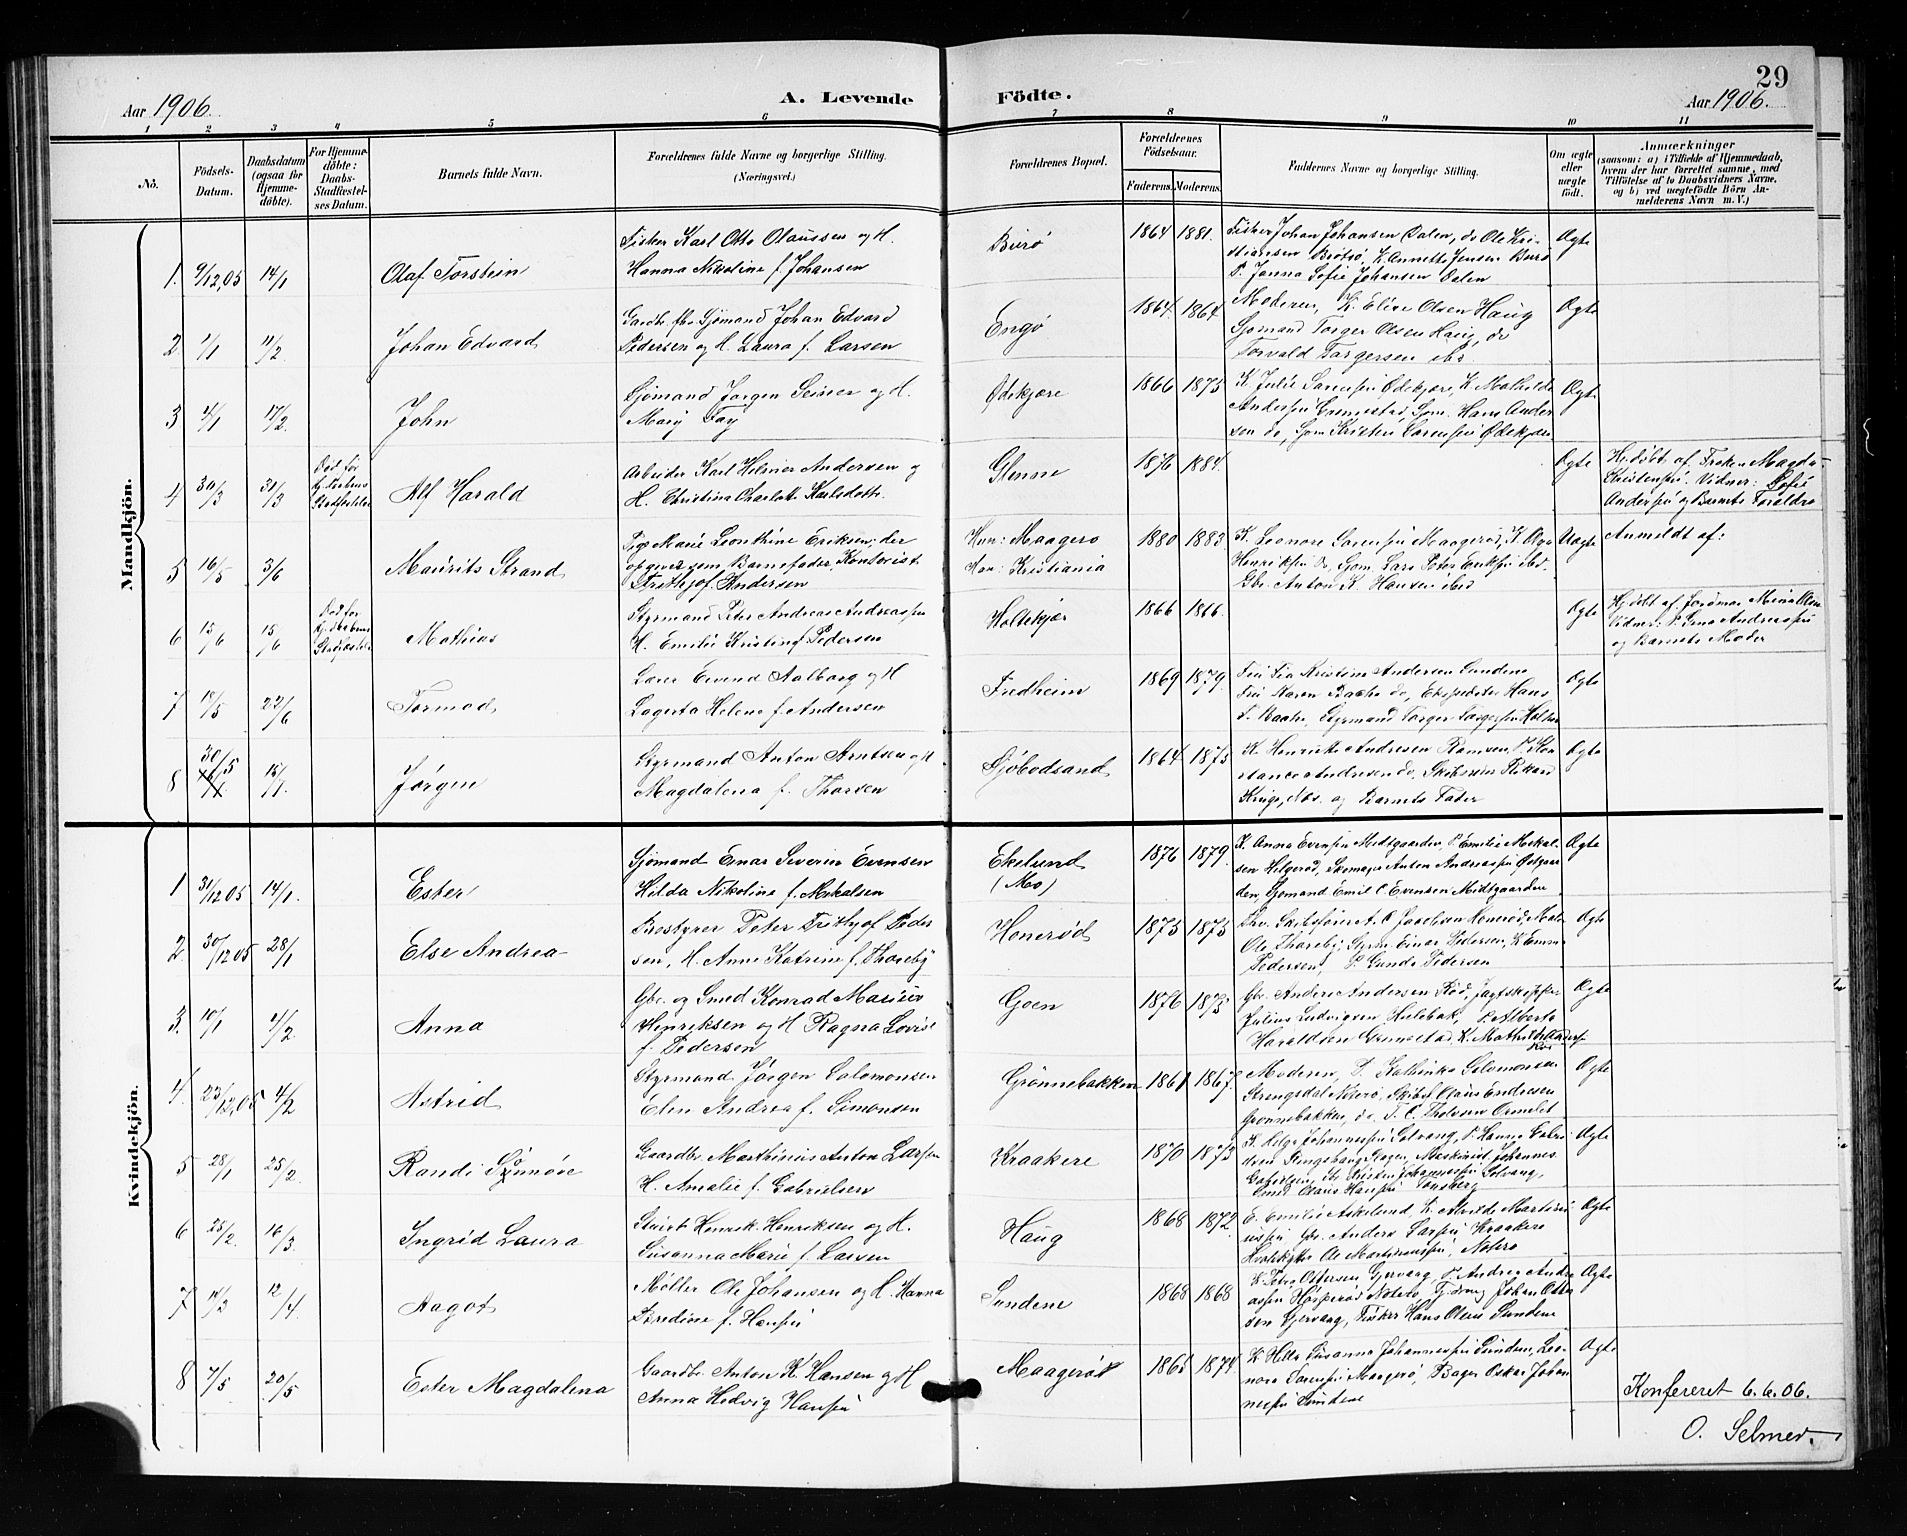 29
Aar 1906. A. Levende Födte. Aar 1906.
1 2 3 4 5 6 7 8 9 10 11
No.
Födsels-
Datum.
Daabsdatum
(ogsaa for
Hjemme-
döbte).
For Hjemme-
döbte:
Daabs-
Stadfæstel-
ses Datum.
Barnets fulde Navn.
Forældrenes fulde Navne og borgerlige Stilling.
(Næringsvei.)
Forældrenes Bopæl.
Forældrenes
Födselsaar.
Faderens. Moderens.
Faddernes Navne og borgerlige Stilling.
Om ægte
eller
uægte
födt.
Anmærkninger
(saasom: a) i Tilfælde af Hjemmedaab,
hvem der har forrettet samme, med
Tilföielse af to Daabsvidners Navne,
og b) ved uægtefödte Börn An-
melderens Navn m. V.)
Mandkjön.
1. 9/12,05 14/1 Olaf Torstein
Fisker Karl Otto Olaussen og H.
Hanna Nikoline f. Johansen
Burø 1864 1881.
Fisker Johan Johansen Dalen, do Ole Kri-
stiansen Brøtsø, K. Annette Jensen Burø
P. Janna Sofie Johansen Dalen
Ægte
2 1/1 11/2 Johan Edvard
Gaardb. fhv Sjømand Johan Edvard
Pedersen og H. Laura f. Larsen
Engø 1864. 1864
Moderen, K. Elise Olsen Haug
Sjømand Torger Olsen Haug, do
Torvald Torgersen ibd.
Ægte
3 4/1 17/2. John
Sjømand Jørgen Seiner og H.
Mary Fay
Ødekjære 1866 1875
K. Julie Sørensen Ødekjære, K. Mathilde
Andersen Grimestad, Sjøm. Hans Ander-
sen do, Sjøm Kristen Sørensen Ødekjære
Ægte
4 30/3 31/3
Død før
Stadfæstelse
Alf Harald
Arbeider Karl Hilmer Andersen og
H. Christina Charlotte Karlsdotter
Glenne 1876 1884.
Ægte
Hj.døbt af Frøken Magda
Kristensen. Vidner: Sofie
Andersen og Barnets Forældre
5 16/5 3/6 Maurits Strand
Pige Marie Leonthine Eriksen; der
opgiver som Barnefader Kontorist
Frithjof Andersen
Hun: Maagerø
Han: Kristiania
1880 1883.
K. Leonore Sørensen Maagerø, K. Olga
Henriksen do, Sjøm. Lars Peter Eriksen ibd.
Gbr. Anton K. Hansen ibd
Uægte
Anmeldt af:
6 15/6 15/6
Død før
Stadfæstelse
Mathias
Styrmand Peter Andreas Andreassen
H. Emilie Kristine f. Pedersen
Holtekjær 1866 1866.
Ægte
Hj.døbt af Jordmor Mina Olsen
Vidner: P. Lina Andreassen
og Barnets Moder
7 18/5 22/6 Tormod
Lærer Eivind Aalborg og H
Lagerta Helene f. Andersen
Fredheim 1869 1879.
Fru Kristine Andersen Sundene
Fru Karen Baahr do, Ekspeditør Hans
Baahr, Styrmand Torger Torgersen
Ægte
8 30/5 15/7. Jørgen
Styrmand Anton Arntsen og H
Magdalena f. Thorsen
Sjøbodsand 1864 1875
K. Henrikke Andresen Ramsen, P. Kon-
stance Andresen do, Skibstøm. Rikard
Kruge, Nøs. og Barnets Fader
Ægte
Kvindekjön.
1 31/12 05 14/1. Ester
Sjømand Einar Severin Evensen
Hilda Nikoline f. Mikalsen
Ekelund
(Mo)
1876 1879.
K. Anna Evensen Midtgaarden, P. Emilie Mikal-
sen Helgerød, Skomager Anton Andreassen Østgaar-
den, Sjømand Emil C. Evensen Midtgaarden
Ægte
2. 30/12 05 28/1 Else Andrea
Bestyrer Peter Frithjof Peder-
sen, H. Anne Katrine f. Thoreby
Honerød 1875 1875
Fhv. Skibsfører A. C. Jacobsen Honerød, Maler
Ole Thoreby, Styrm. Einar Pedersen, K. Emma
Pedersen, P. Gunda Pedersen
Ægte
3. 10/1 11/2 Anna
Gbr. og Smed Konrad Marius
Henriksen og H Ragna Lovise
f. Pedersen
Goen 1876 1873
Gbr. Anders Andersen Rød, Jagtskipper
Julius Ludvigsen Hulebak, P. Alberte
Haraldsen Grimestad, K. Mathilde Anders.
Rød
Ægte
4. 23/12,05 4/2 Astrid
Styrmand Jørgen Salomonsen
Elen Andrea f. Simonsen
Grønnebakken 1861 1867.
Moderen, P. Kathinka Salomonsen
Strengsdal Nøterø, Skibst. Olaus Endresen
Grønnebakken, do T. C. Tholvsen Ormelet
Ægte
5 28/1 25/2. Randi Synnøve
Gaardbr. Marthinius Anton Larsen
H. Amalie f. Gabrielsen
Kraakere 1870 1873
K. Helga Johannessen Solvang, P. Hanna Gabri-
elsen Stangshaug Slagen, Maskinist Johannes
Gabrielsen, Kristen Johannessen Solvang,
Smed Olaus Hansen Tønsberg
Ægte
6 25/2. 16/3. Ingrid Laura
Gaardb Henrik Henriksen og H.
Susanna Marie f. Larsen
Haug 1868 1872.
E. Emilie Askelund, K. Alvilde Martini-
ussen, Gbr. Anders Larsen Kraakere
Hvalskytter Ole Martiniussen, Nøterø
Ægte
7 14/2 12/4. Aagot
Møller Ole Johansen og H. Hanna
Bredine f. Hansen
Sundene 1868 1868
K. Petra Ottersen Gjervaag, P. Andrea Andre-
assen Hasperød Nøterø, Johan Otter-
sen Gjervaag, Fisker Hans Olsen Sundene
Ægte
8 7/5 20/5 Ester Magdalena
Gaardbr. Anton K. Hansen og H
Anna Hedvig Hansen
Maagerøe 1865 1874.
K. Helle Susanna Johannessen Sundene, Leo-
nore Sørensen Maagerø, Bager Oskar Johan-
nessen Sundene
Ægte
Konfereret 6.6.06.
O. Selmer.